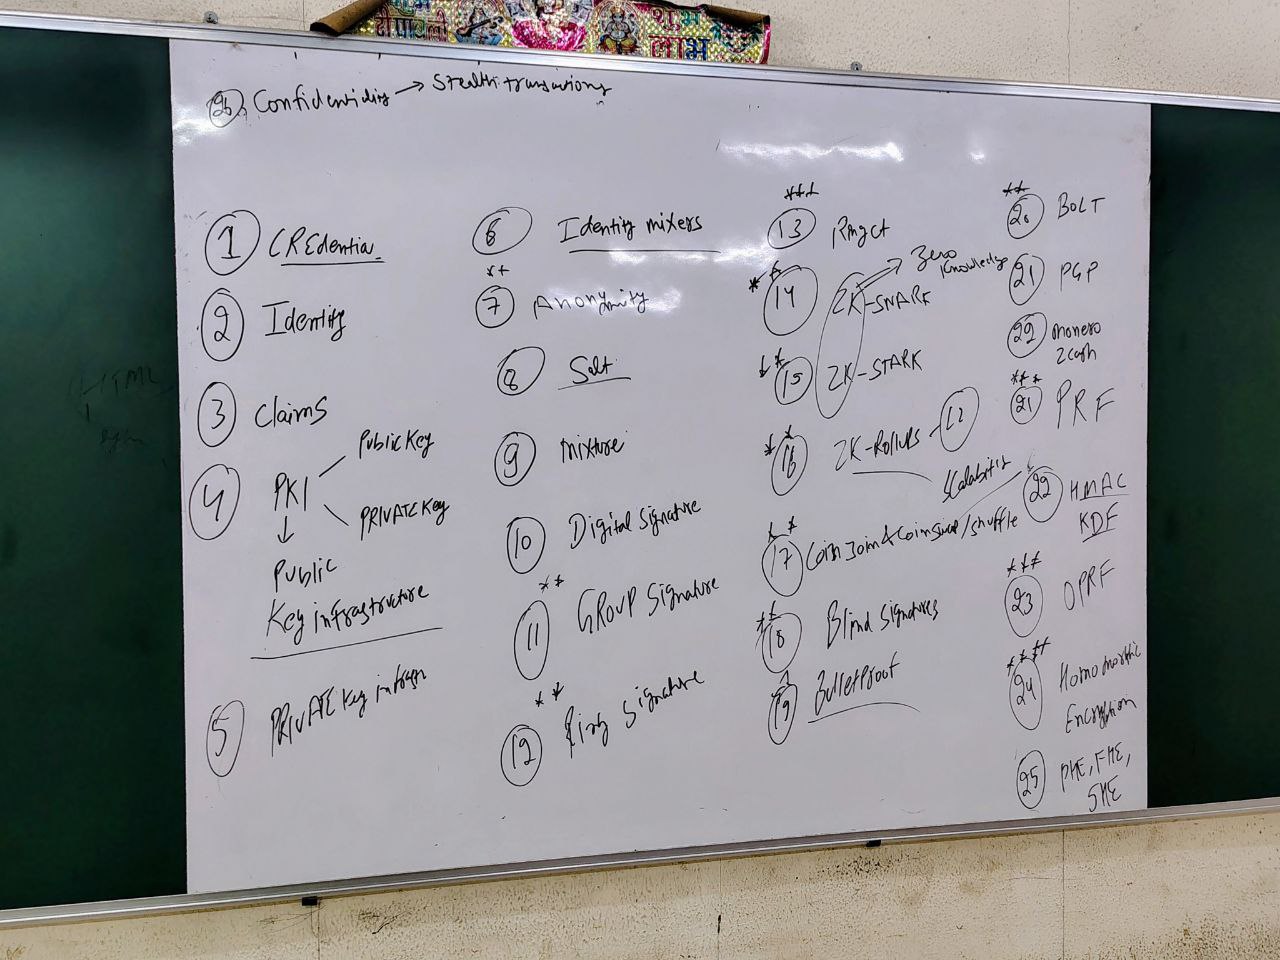 26 Confidentiality → Stealth transactions
1 CREdentia
2 Identity
3 Claims
4 PKI
Public Key
PRIVATE Key
Public
Key infrastructure
5 PRIVATE Key infrasn
6 Identity mixers
** 7 Anonymity
8 Salt
9 Mixture
10 Digital Signature
** 11 GROUP Signature
** 12 Ring Signature
*** 13 Ringct
** 14 ZK-SNARK
Zero
Knowledge
** 15 ZK-STARK
** 16 ZK-Rollups
L2
Scalability
** 17 Coin Join & Coin swap / shuffle
** 18 Blind Signatures
* 19 Bulletproof
** 20 BOLT
21 PGP
22 monero
Zcash
*** 21 PRF
22 HMAC
KDF
*** 23 OPRF
**** 24 Homomorphic
Encryption
25 PHE, FHE,
SHE